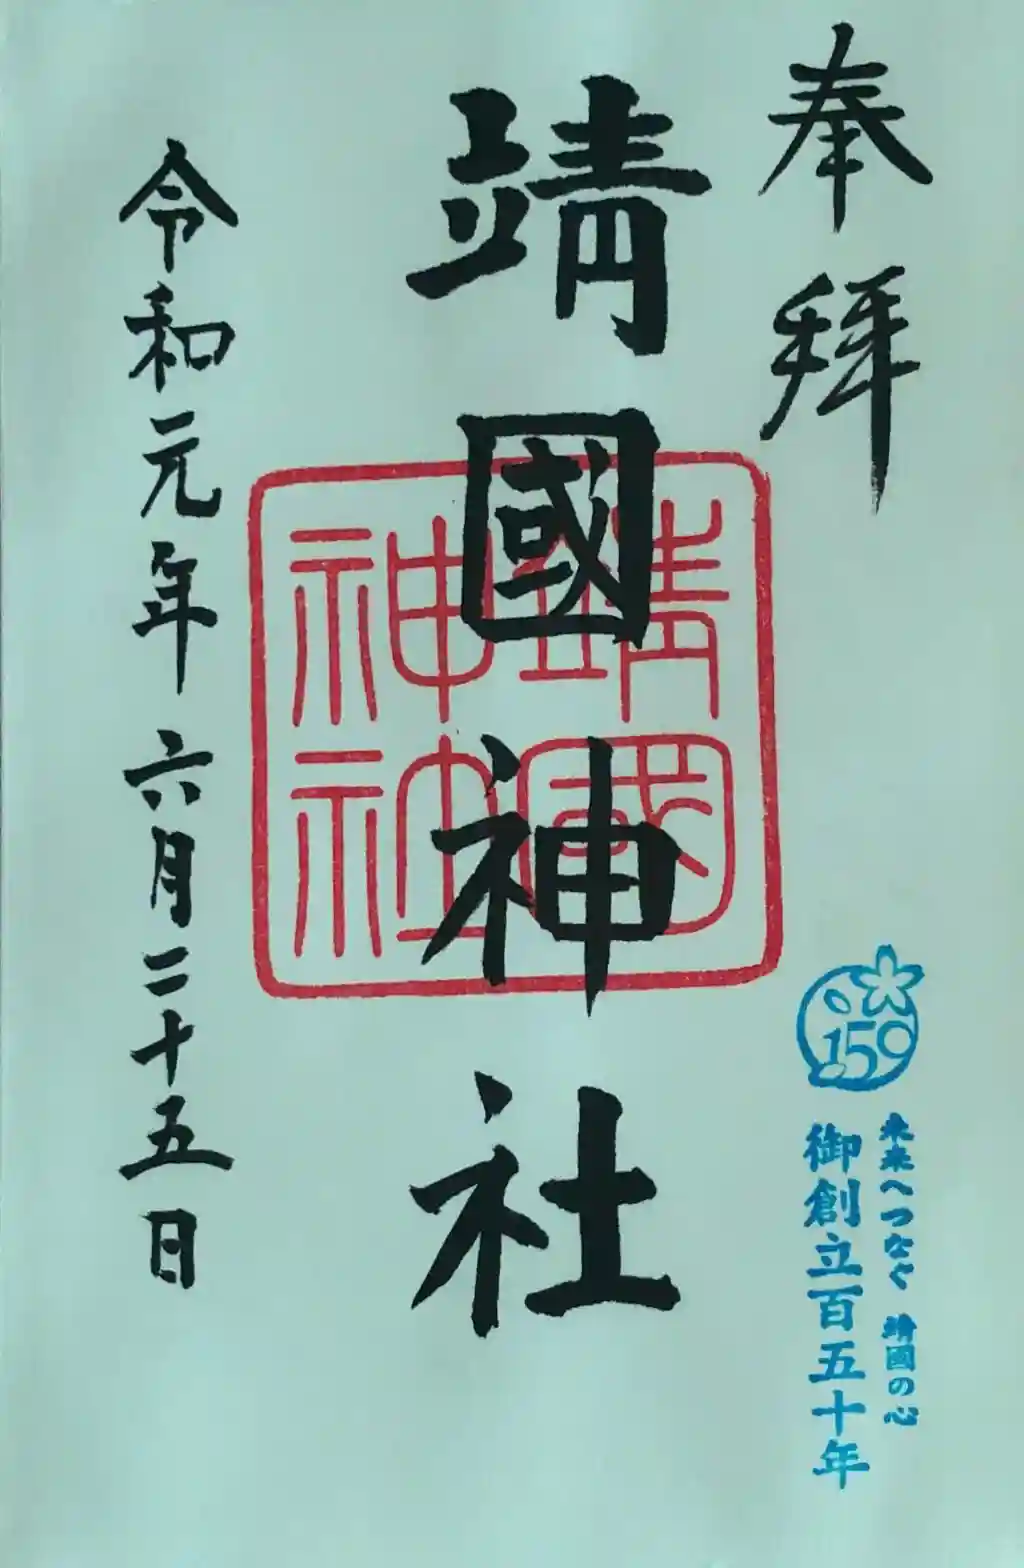 奉拝
靖國神社
靖國
神社
令和元年六月二十五日
150
未来へつなぐ 靖國の心
御創立百五十年